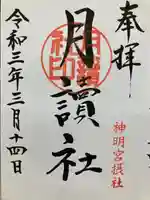 奉拝
月讀社
神明宮摂社
令和三年三月十四日